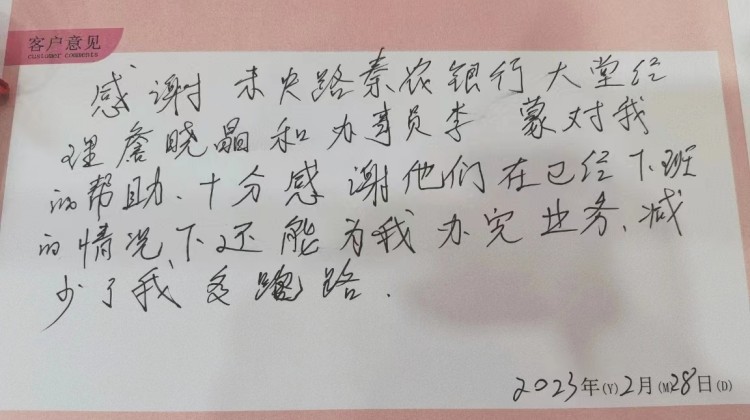 客户意见
customer comments
感谢未央路秦农银行大堂经
理詹晓晶和办事员李蒙对我
的帮助、十分感谢他们在已经下班
的情况下还能为我办完业务、减
少了我多跑路.
2023年(Y)2月(M)28日(D)